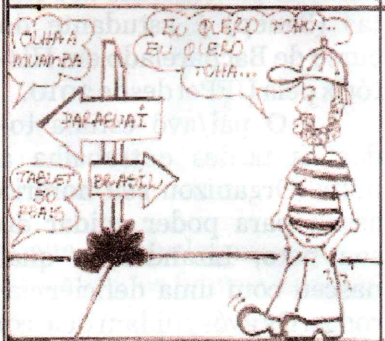 OLHA A
MUAMBA
EU QUERO TCHU..
EU QUERO
TCHA...
PARAGUAÍ
BRASIL
TABLET
50